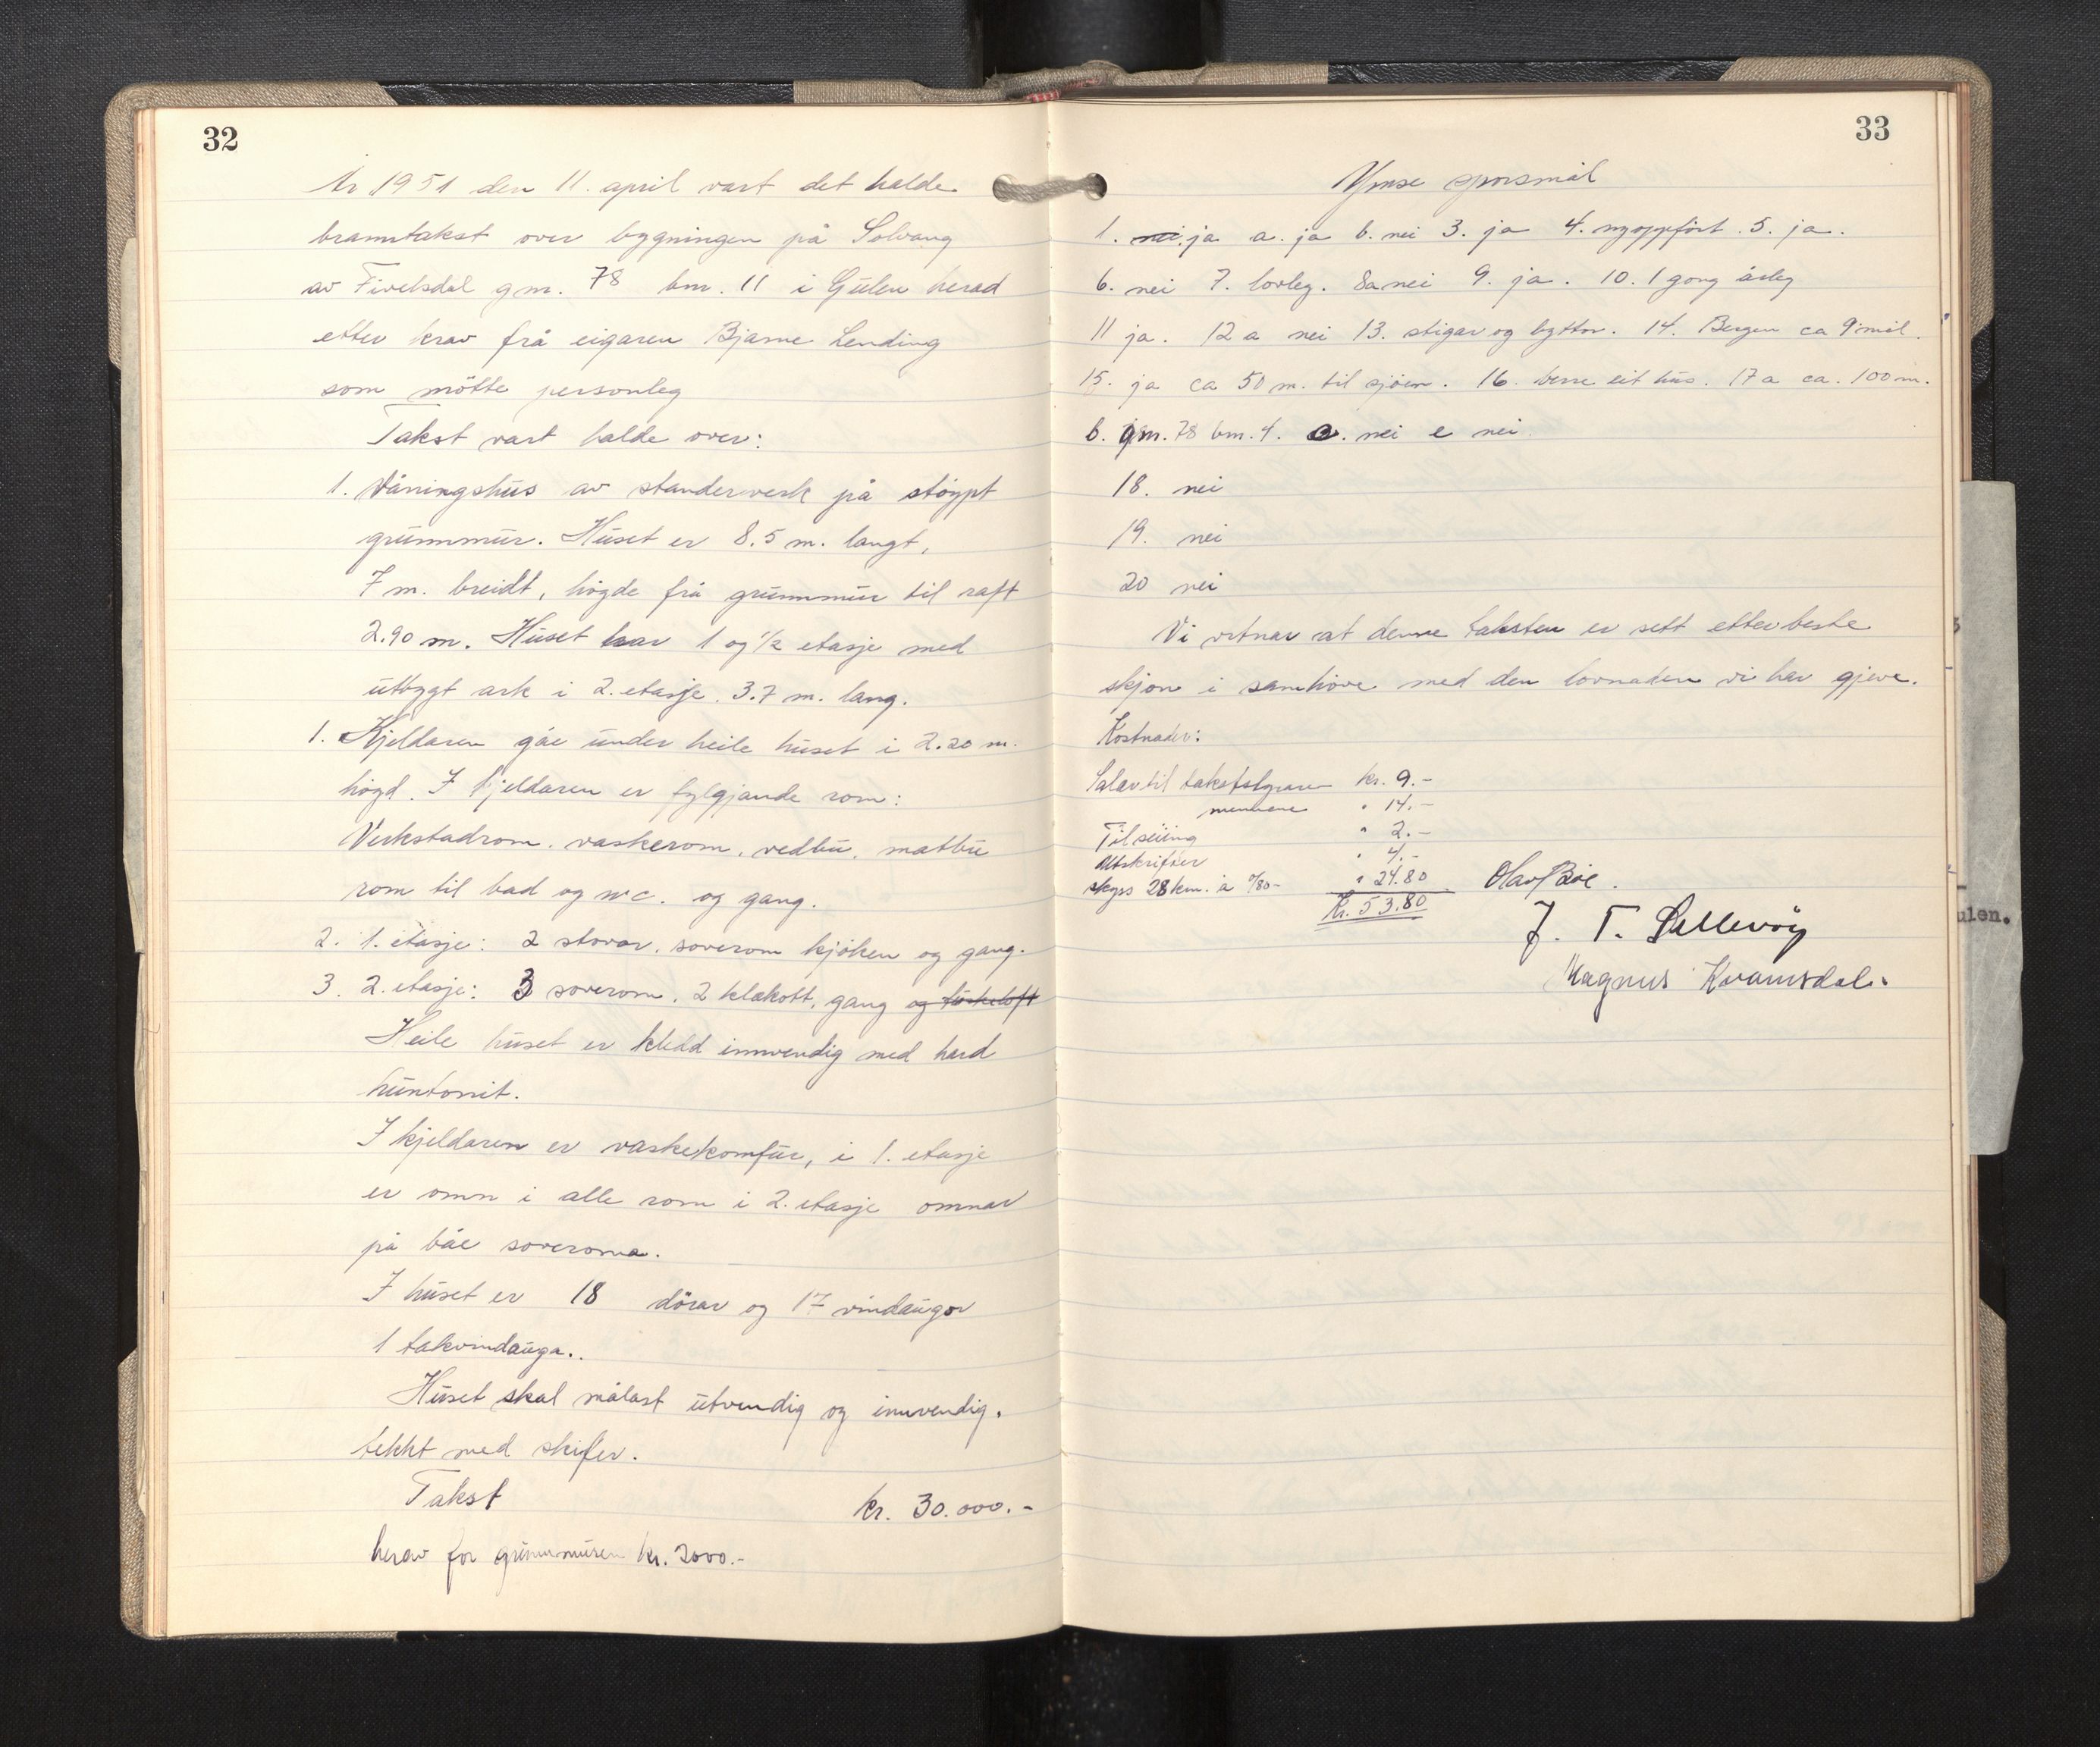 32
År 1951 den 11. april vart det halde
branntakst over bygningen på Solvang
av Fivelsdal gnr. 78 bnr. 11 i Gulen herad
etter krav frå eigaren Bjarne Lending
som møtte personleg
Takst vart halde over:
1. Våningshus av standerverk på støypt
grunnmur. Huset er 8.5 m. langt,
7 m. breidt, høgde frå grunnmur til raft
2.90 m. Huset har 1 og 1/2 etasje med
utbygt ark i 2. etasje. 3.7 m. lang.
1. Kjeldaren går under heile huset i 2.20 m.
høgd. I kjeldaren er fylgjande rom:
Verkstadrom, vaskerom, vedbu, matbu
rom til bad og wc. og gang.
2. 1. etasje: 2 stovar, soverom kjøken og gang.
3. 2. etasje: 3 soverom, 2 klekott, gang og törkeloft
Heile huset er kledd innvendig med hard
huntonit.
I kjeldaren er vaskekomfur, i 1. etasje
er omn i alle rom i 2. etasje omnar
på båe soveroma.
I huset er 18 dörar og 17 vindaugor
1 takvindauga.
Huset skal målast utvendig og innvendig.
tekkt med skifer.
Takst kr. 30.000.-
herav for grunnmuren kr. 2000.-
33
Ymse spørsmål
1. nei, ja a. ja b. nei 3. ja 4. nyoppfört. 5. ja.
6. nei 7. lovleg. 8a nei 9. ja. 10. 1 gong årleg
11 ja. 12 a nei 13. stigar og byttor. 14. Bergen ca 9 mil.
15. ja ca 50 m. til sjöen. 16. berre eit hus. 17 a ca. 100 m.
b. gnr. 78 bnr. 4. c. nei e nei.
18. nei
19. nei
20 nei
Vi vitnar at denne taksten er sett etter beste
skjøn i samhøve med den lovnaden vi har gjeve.
Kostnader:
Salær til takststyraren kr. 9.-
mennene " 14.-
Tilseiing " 2.-
Utskrifter " 4.-
skyss 28 km. à 0/80- " 24.80
Kr. 53.80
Olav Böe.
J. T. Sellevöy
Magnus Kvamsdal.
ulen.